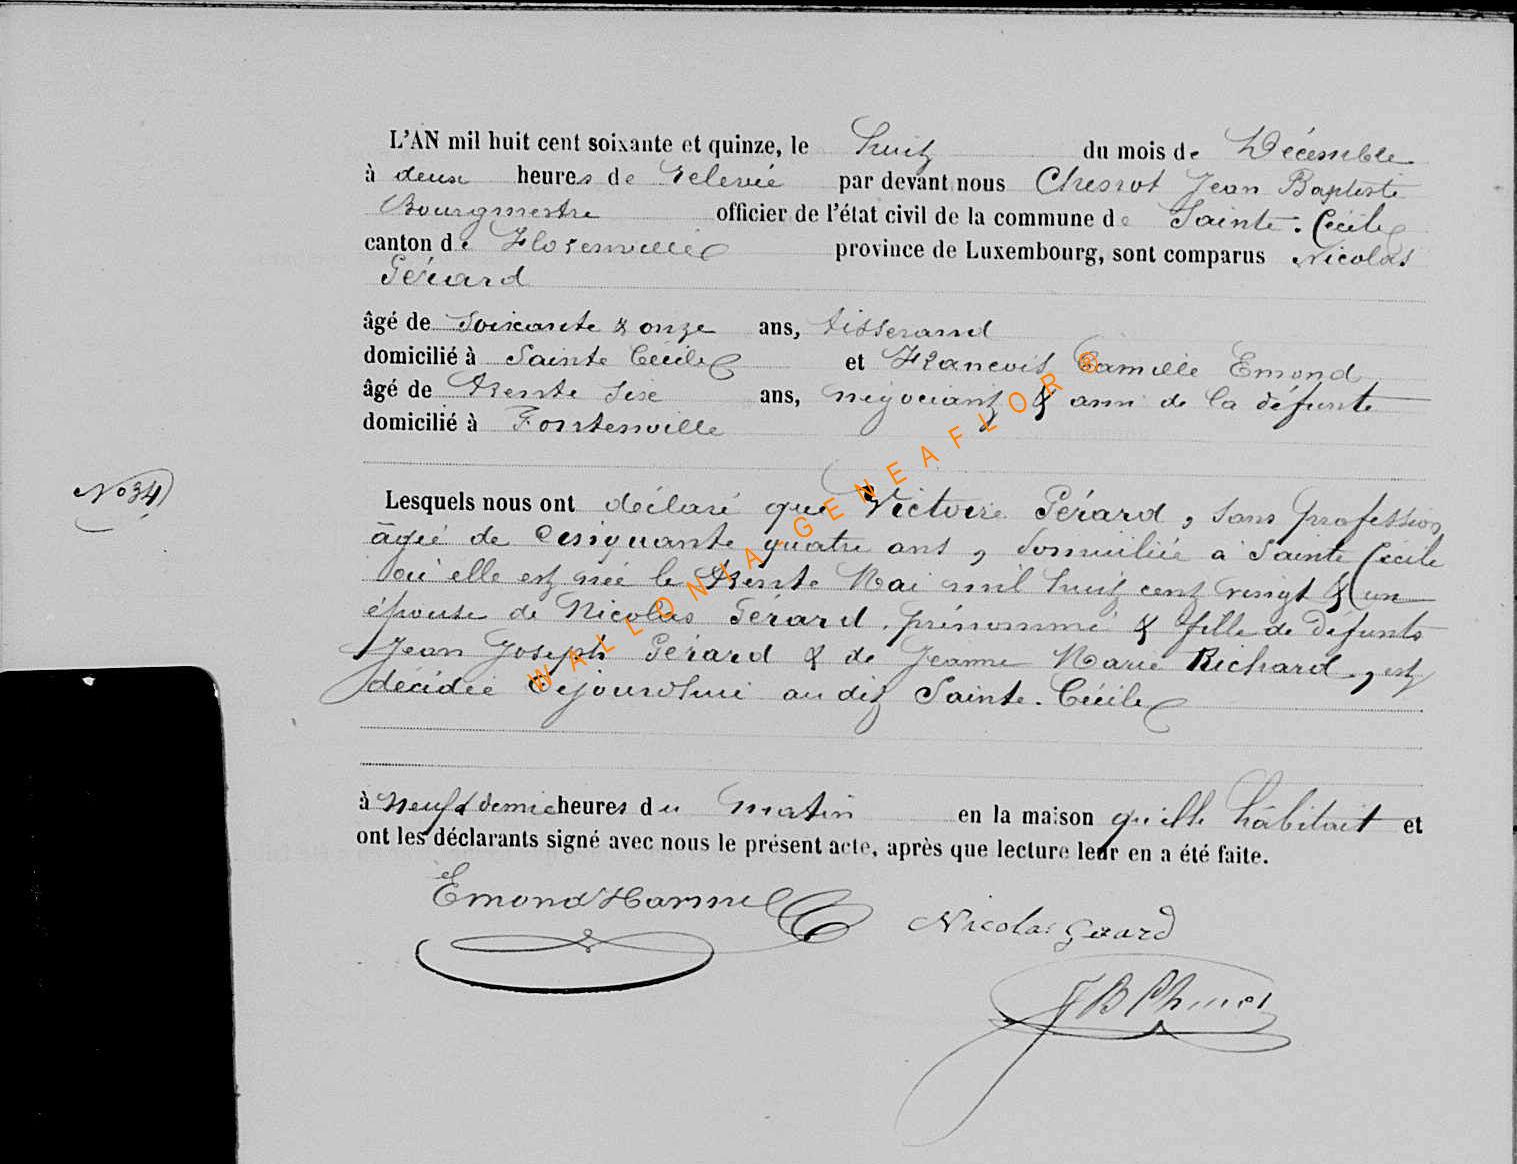 L'AN mil huit cent soixante et quinze, le huit du mois de Décembre
à deux heures de relevée par devant nous Chesrot Jean Baptiste
Bourgmestre officier de l'état civil de la commune de Sainte-Cécile
canton de Florenville province de Luxembourg, sont comparus Nicolas
Gérard
âgé de soixante & onze ans, tisserand
domicilié à Sainte Cécile et François Camille Emond
âgé de Trente six ans, négociant & ami de la défunte
domicilié à Fontenoille
N° 34
Lesquels nous ont déclaré que Victoire Gérard, sans profession
âgée de cinquante quatre ans, domiciliée à Sainte Cécile
où elle est née le trente Mai mil huit cent vingt & un
épouse de Nicolas Gérard, prénommé & fille de défunts
Jean Joseph Gérard & de Jeanne Marie Richard, est
décédée cejourd'hui audit Sainte-Cécile
à neuf & demie heures du matin en la maison qu'elle habitait et
ont les déclarants signé avec nous le présent acte, après que lecture leur en a été faite.
Emond Harmel Nicolas Gérard
JB
WALLONIA-GENEAFLOR ®